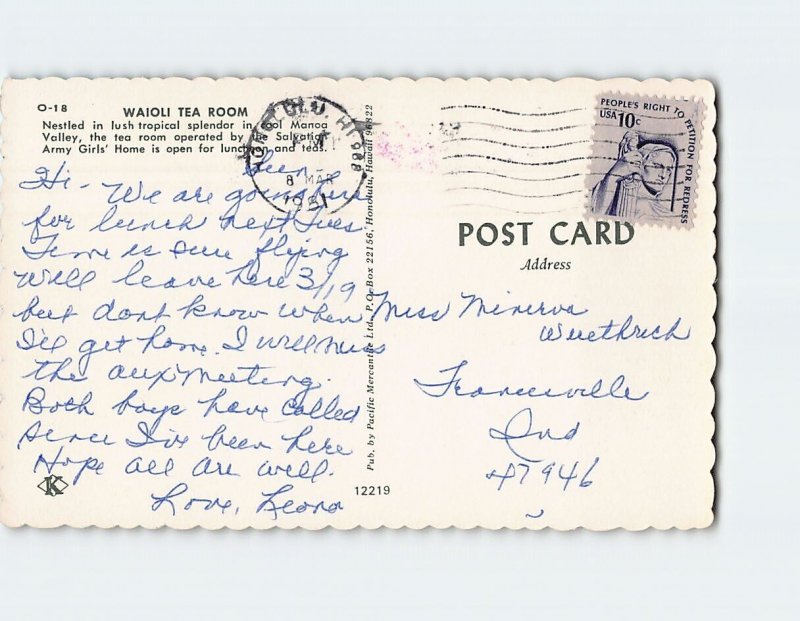 O-18 WAIOLI TEA ROOM
Nestled in lush tropical splendor in cool Manoa
Valley, the tea room operated by the Salvation
Army Girls' Home is open for lunch and teas.
HONOLULU, HI 968
8 MAR
1981
PEOPLE'S RIGHT TO PETITION FOR REDRESS
USA 10c
Sun.
Hi - We are going here
for lunch next Tues.
Time is sure flying
Will leave here 3/19
but dont know when
I'll get home. I will miss
the aux meeting.
Both boys have called
since I've been here
Hope all are well.
Love, Leona
Pub. by Pacific Mercantile Ltd., P.O. Box 22156, Honolulu, Hawaii 96822
POST CARD
Address
Miss Minerva
Wuethrich
Francesville
Ind
47946
K
12219